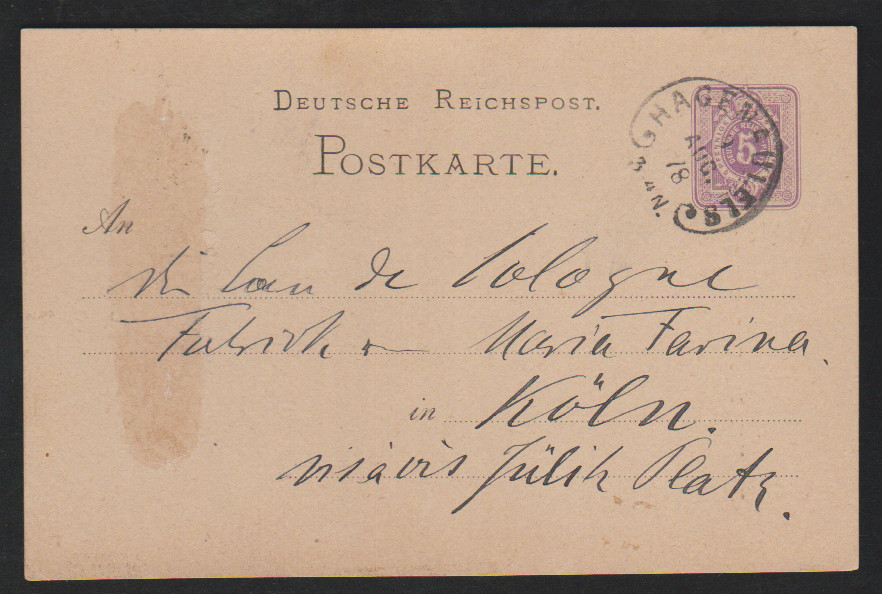 DEUTSCHE REICHSPOST.
POSTKARTE.
5
AUG.
78
3-4 N.
An
die Eau de Cologne
Fabrick Maria Farina.
in Köln.
visàvis Jülich Platz.